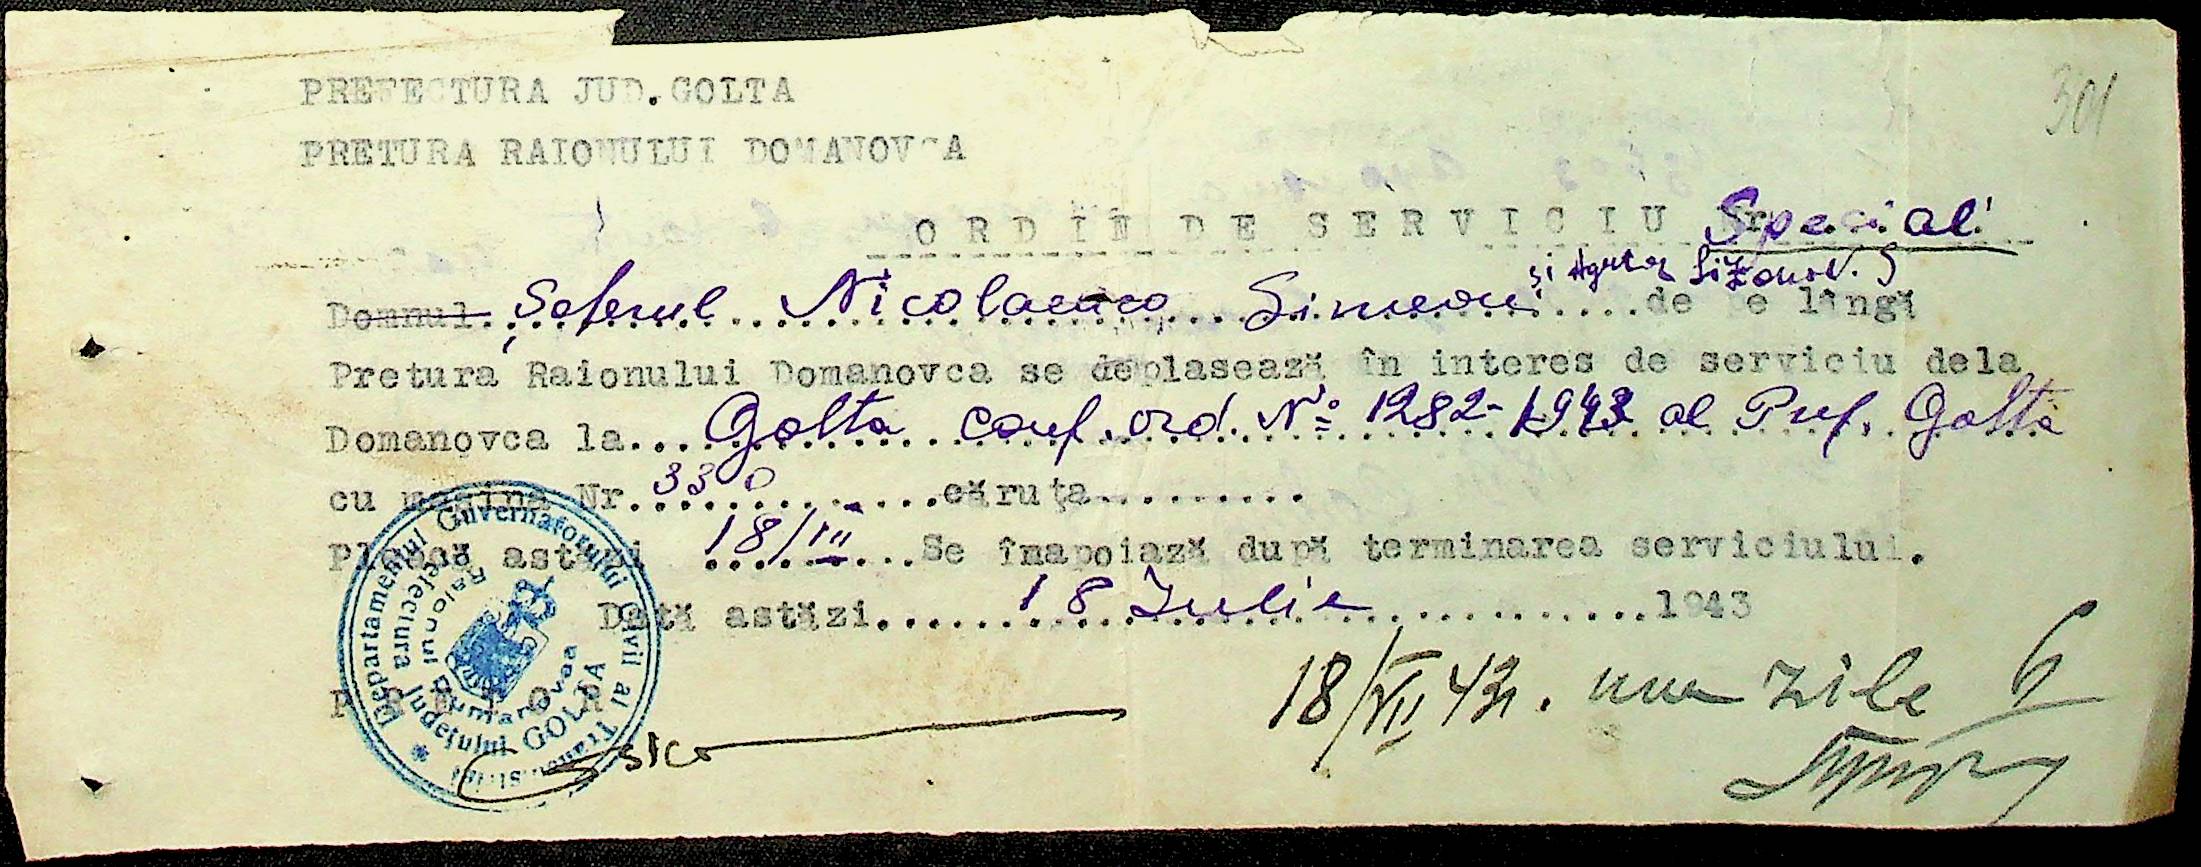 301
PREFECTURA JUD.GOLTA
PRETURA RAIONULUI DOMANOVCA
ORDIN DE SERVICIU Nr. Special
și Agentul
Domnul Șoferul Nicolaenco Simeon....de pe lîngă
Pretura Raionului Domanovca se deplasează în interes de serviciu dela
Domanovca la...Golta conf. ord. № 1282-1943 al Pref. Golta
cu mașina Nr. 330 ......căruța.........
Pleacă astăzi 18/VII...Se înapoiază după terminarea serviciului.
Dată astăzi....18 Iulie...........1943
PRETOR
18/VII 43. zile
Departamentul Guvernatorului Civil al Transnistriei
Prefectura Județului GOLTA
Raionul Dumanovca